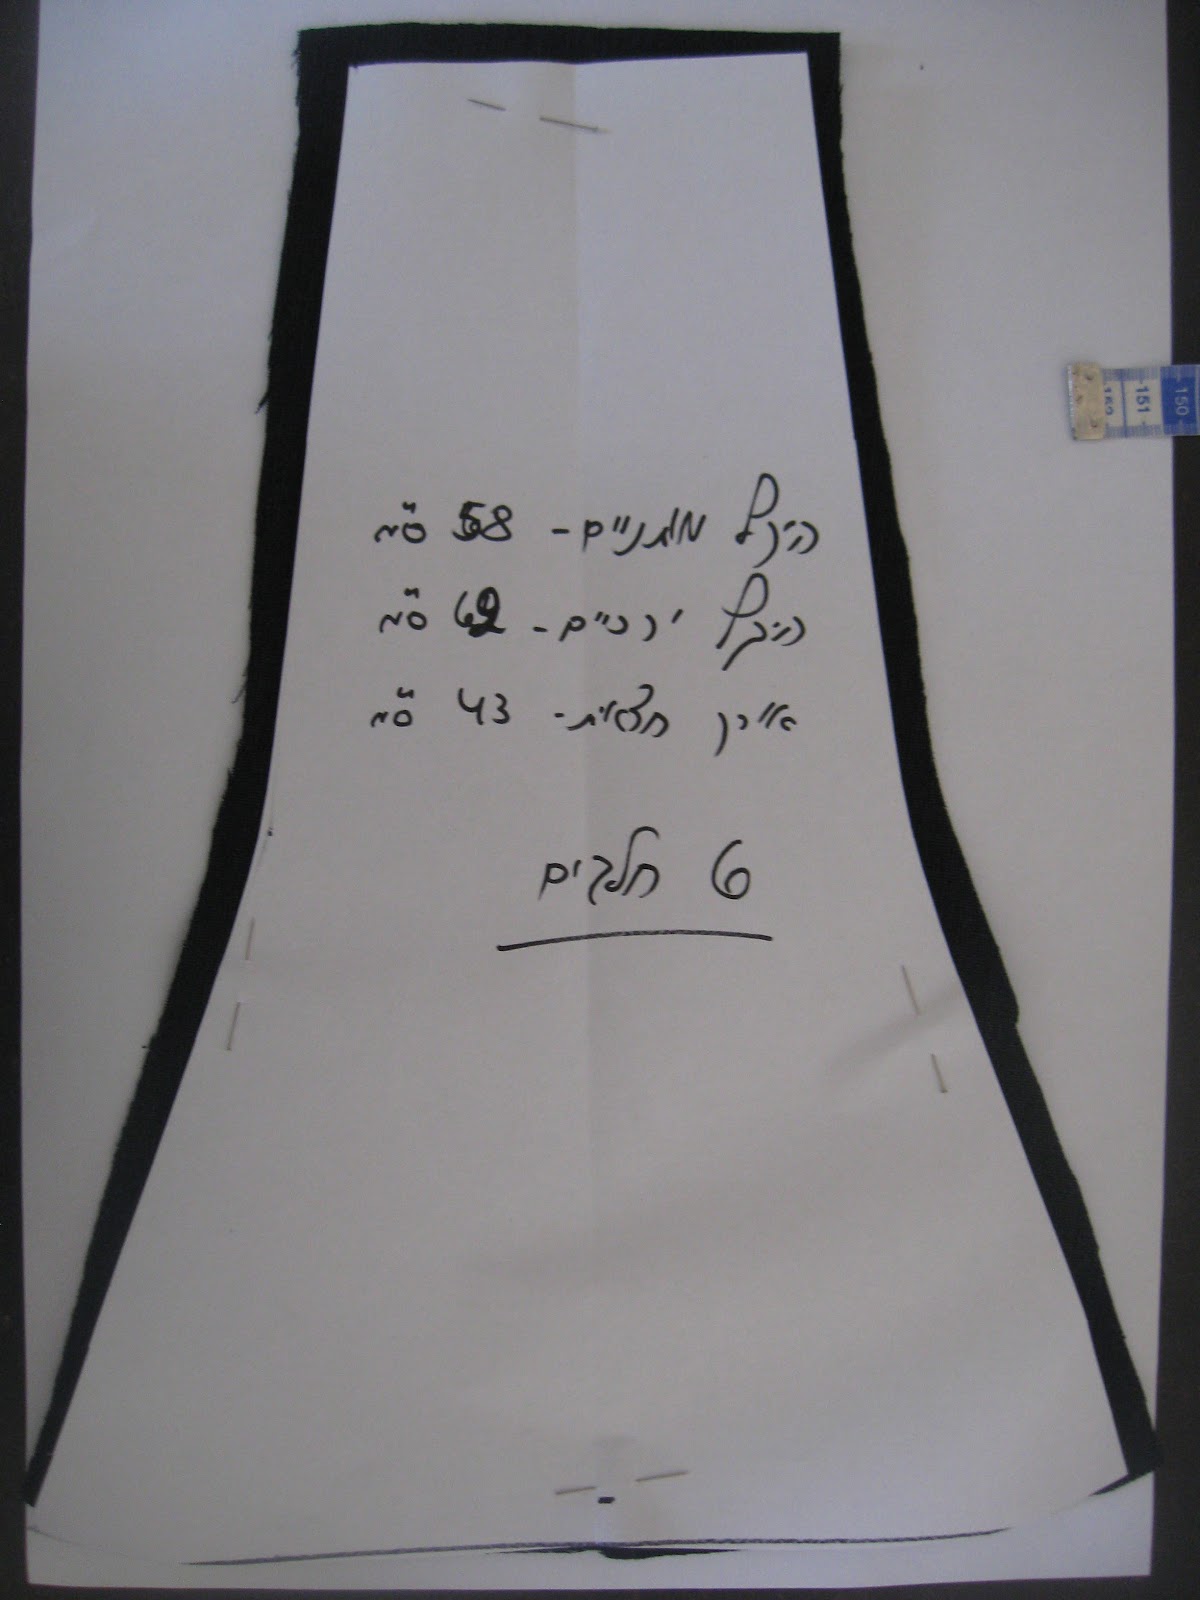 היקף מותניים - 58 ס"מ
היקף ירכיים - 62 ס"מ
אורך חצאית - 43 ס"מ
6 חלקים
152 151 150